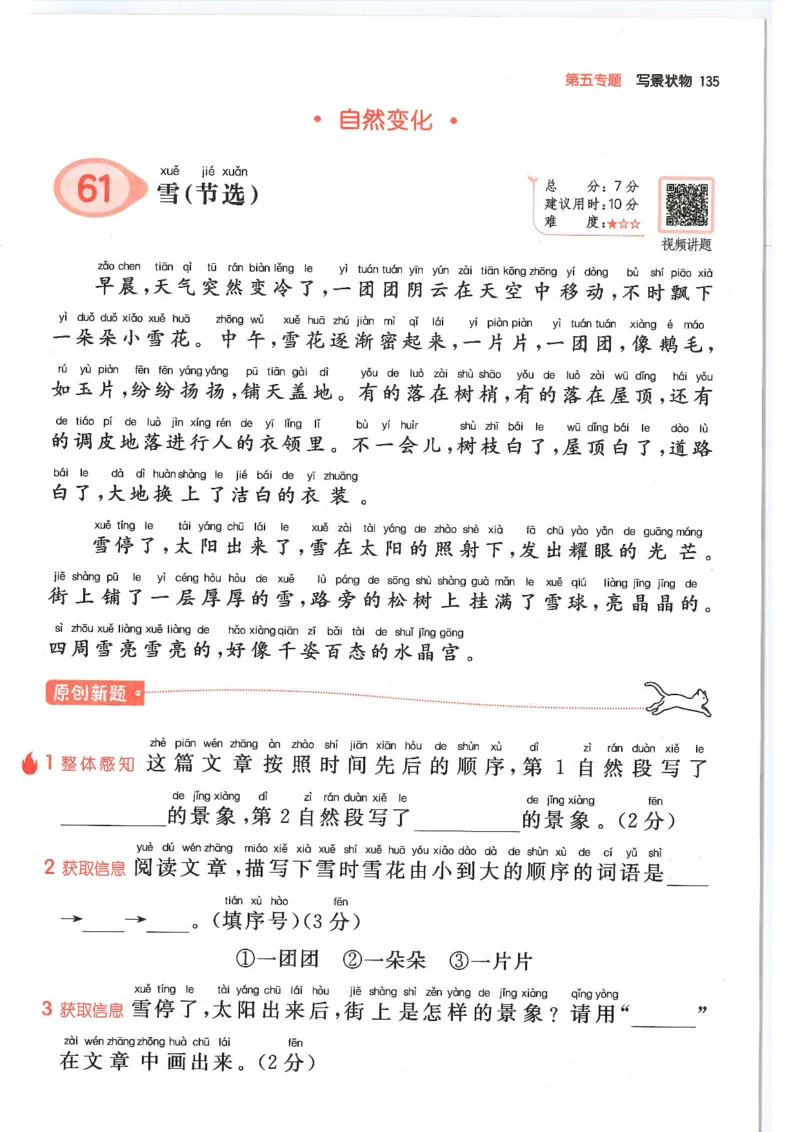 第五专题 写景状物 135
· 自然变化 ·
xuě jié xuǎn
61 雪(节选)
总 分：7分
建议用时：10分
难 度：★☆☆
视频讲题
zǎo chen tiān qì tū rán biàn lěng le yì tuán tuán yīn yún zài tiān kōng zhōng yí dòng bù shí piāo xià
早晨，天气突然变冷了，一团团阴云在天空中移动，不时飘下
yì duǒ duǒ xiǎo xuě huā zhōng wǔ xuě huā zhú jiàn mì qǐ lái yí piàn piàn yì tuán tuán xiàng é máo
一朵朵小雪花。中午，雪花逐渐密起来，一片片，一团团，像鹅毛，
rú yù piàn fēn fēn yáng yáng pū tiān gài dì yǒu de luò zài shù shāo yǒu de luò zài wū dǐng hái yǒu
如玉片，纷纷扬扬，铺天盖地。有的落在树梢，有的落在屋顶，还有
de tiáo pí de luò jìn xíng rén de yī lǐng lǐ bù yí huìr shù zhī bái le wū dǐng bái le dào lù
的调皮地落进行人的衣领里。不一会儿，树枝白了，屋顶白了，道路
bái le dà dì huàn shàng le jié bái de yī zhuāng
白了，大地换上了洁白的衣装。
xuě tíng le tài yáng chū lái le xuě zài tài yáng de zhào shè xià fā chū yào yǎn de guāng máng
雪停了，太阳出来了，雪在太阳的照射下，发出耀眼的光芒。
jiē shàng pū le yì céng hòu hòu de xuě lù páng de sōng shù shàng guà mǎn le xuě qiú liàng jīng jīng de
街上铺了一层厚厚的雪，路旁的松树上挂满了雪球，亮晶晶的。
sì zhōu xuě liàng xuě liàng de hǎo xiàng qiān zī bǎi tài de shuǐ jīng gōng
四周雪亮雪亮的，好像千姿百态的水晶宫。
原创新题
zhè piān wén zhāng àn zhào shí jiān xiān hòu de shùn xù dì zì rán duàn xiě le
1 整体感知 这篇文章按照时间先后的顺序，第1自然段写了
de jǐng xiàng dì zì rán duàn xiě le de jǐng xiàng fēn
________的景象，第2自然段写了________的景象。(2分)
yuè dú wén zhāng miáo xiě xià xuě shí xuě huā yóu xiǎo dào dà de shùn xù de cí yǔ shì
2 获取信息 阅读文章，描写下雪时雪花由小到大的顺序的词语是____
tián xù hào fēn
→____→____。(填序号)(3分)
①一团团 ②一朵朵 ③一片片
xuě tíng le tài yáng chū lái hòu jiē shàng shì zěn yàng de jǐng xiàng qǐng yòng
3 获取信息 雪停了，太阳出来后，街上是怎样的景象？请用“______”
zài wén zhāng zhōng huà chū lái fēn
在文章中画出来。(2分)